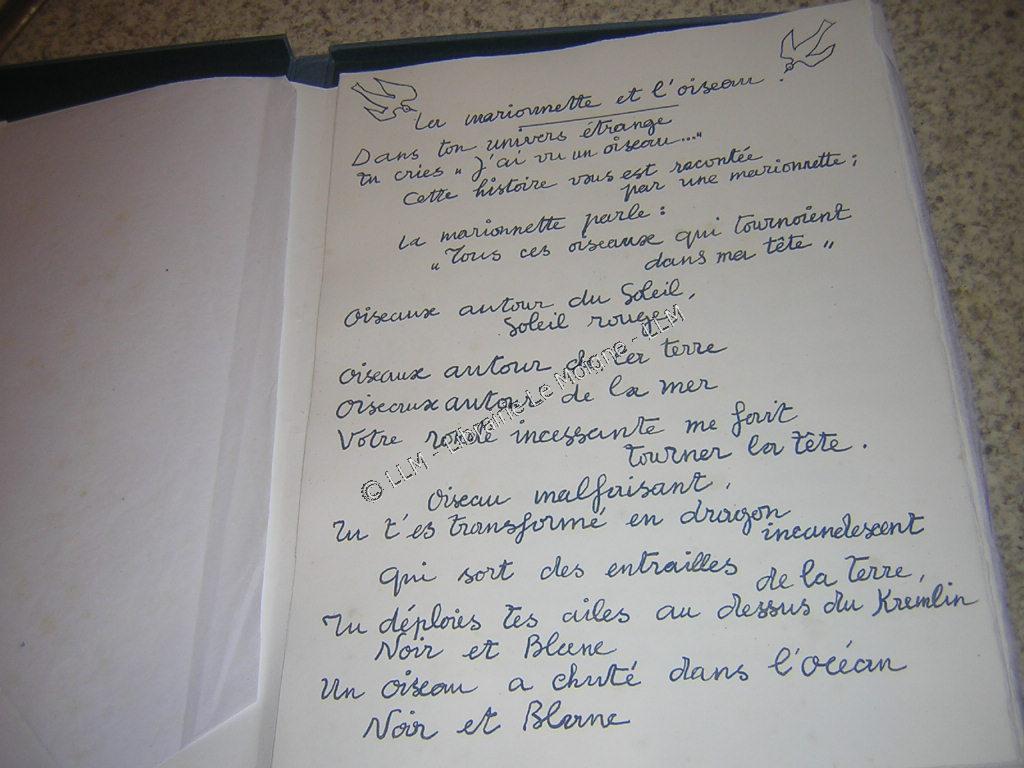 La marionnette et l'oiseau.
Dans ton univers étrange
tu cries " J'ai vu un oiseau..."
Cette histoire vous est racontée
par une marionnette ;
La marionnette parle :
"Tous ces oiseaux qui tournoient
dans ma tête "
Oiseaux autour du Soleil,
Soleil rouge
Oiseaux autour de la terre
Oiseaux autour de la mer
Votre ronde incessante me fait
tourner la tête.
Oiseau malfaisant,
Tu t'es transformé en dragon
incandescent
qui sort des entrailles de la Terre,
Tu déploies tes ailes au dessus du Kremlin
Noir et Blanc
Un oiseau a chuté dans l'Océan
Noir et Blanc
© LLM - Librairie Le Moigne - LLM